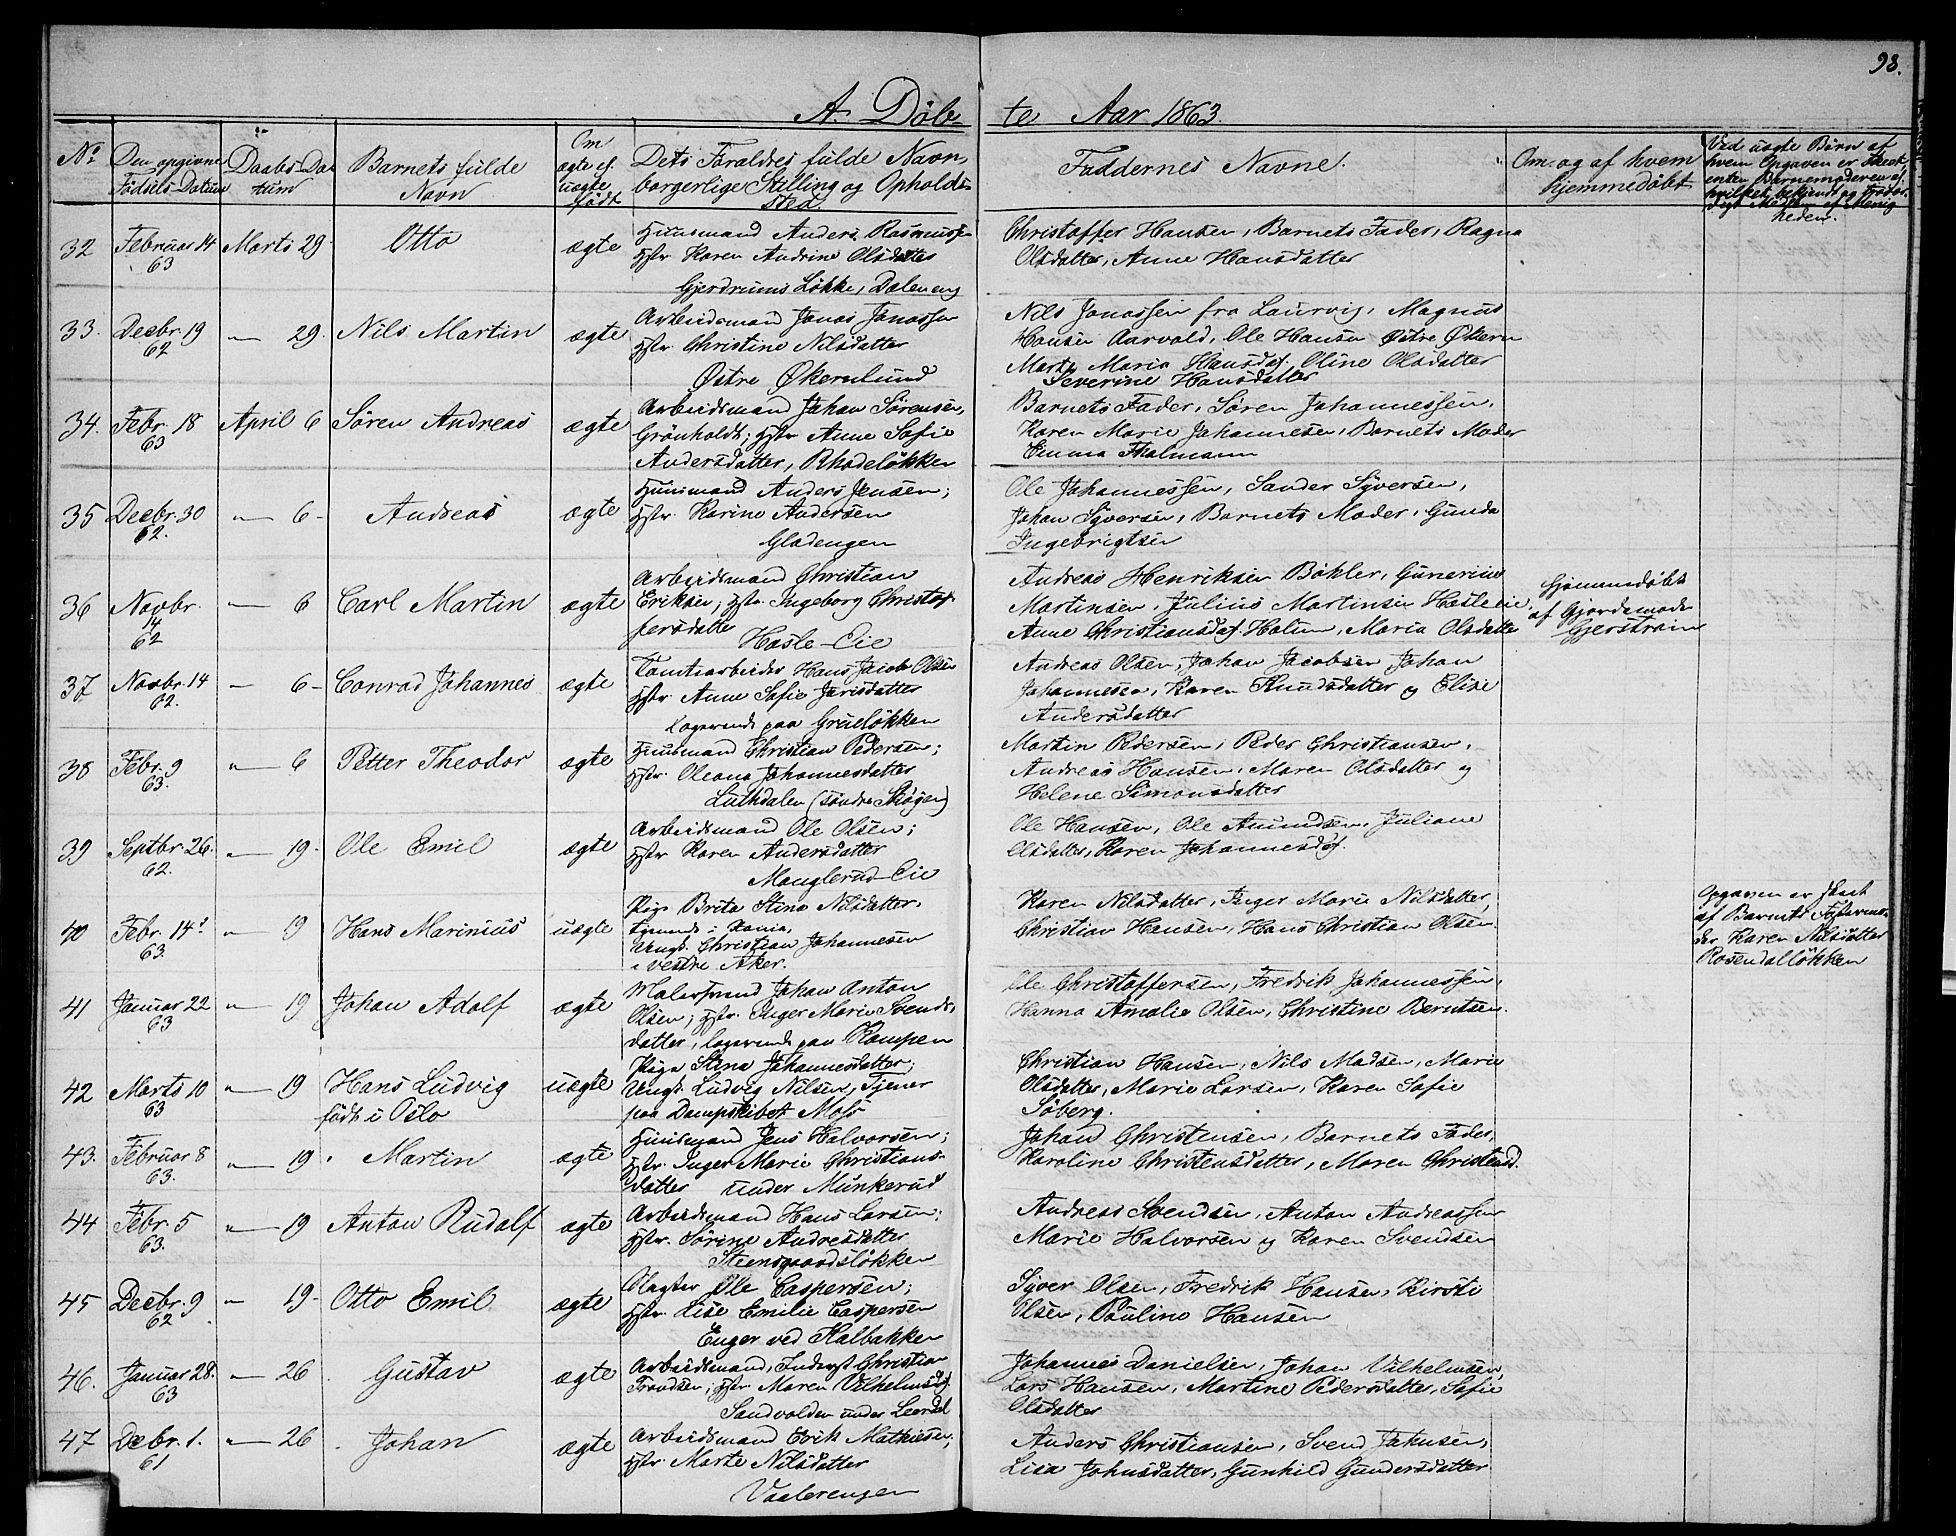 98.
A. Døb-
te Aar 1863.
No
Den opgivne
Fødsels-Datum
Daabs-Da-
tum
Barnets fulde
Navn
Om
ægte el.
uægte
født
Dets Forældres fulde Navn,
borgerlige Stilling og Opholds-
sted.
Faddernes Navne.
Om og af hvem
hjemmedøbt
Ved uægte Børn af
hvem Opgaven er skeet
enten Barnemoderen el.
hvilket bekjendt og trovær-
digt Medlem af Menig
heden.
32 Februar 14 Marts 29 Otto ægte
63
Huusmand Anders Rasmussen
Hstr. Karen Andrine Olsdatter
Gjerdrums Løkke, Dæleneng
Christoffer Hansen, Barnets Fader, Ragna
Olsdatter, Anne Hansdatter
33. Decbr. 19 " 29. Nils Martin ægte
62
Arbeidsmand Jonas Jonassen
Hstr. Christine Nilsdatter
Østre Økernlund
Nils Jonassen fra Laurvig, Magnus
Hansen Aarvold, Ole Hansen Østre Økern
Marte Maria Hansdat. Oline Olsdatter
Severine Hansdatter
34. Febr. 18 April 6 Søren Andreas ægte
63
Arbeidsmand Johan Sørensen,
Grønholdt; Hstr Anne Sofie
Andersdatter, Rhodeløkken
Barnets Fader, Søren Johannessen,
Karen Marie Johannesen, Barnets Moder
Emma Thalmann
35 Decbr. 30 " 6 - Andreas ægte
62.
Huusmand Anders Jensen;
Hstr. Karine Andersen
Gladengen
Ole Johannessen, Sander Syversen,
Johan Syversen, Barnets Moder, Gunda
Ingebrigtsen
36 Novbr. " 6 Carl Martin ægte
14
62
Arbeidsmand Christian
Eriksen; Hstr. Ingeborg Christof
fersdatter
Hasle-Eie
Andreas Henriksen Bøhler, Gunerius
Martinsen, Julius Martinsen Hasleeie,
Anne Christiansdat. Holm, Maria Olsdatter
Hjemmedøbt
af Gjordemoder
Gjerstrøm
37 Novbr. 14 " 6 - Conrad Johannes ægte
62.
Tomtearbeider Hans Jacob Olsen
Hstr Anne Sofie Jørisdatter
logerende paa Grueløkken
Andreas Olsen, Johan Jacobsen Johan
Johannessen, Karen Knudsdatter og Elise
Andersdatter
38 Febr. 9 " 6 Petter Theodor ægte
63.
Huusmand Christian Pedersen;
Hstr. Oleana Johannesdatter
Luthdalen (søndre Skøyen)
Martin Pedersen, Peder Christiansen,
Andreas Hansen, Maren Olsdatter og
Helene Simonsdatter
39 Septbr. 26. " 19. Ole Emil ægte
62.
Arbeidsmand Ole Olsen;
Hstr Karen Andersdatter
Manglerud-Eie
Ole Hansen, Ole Amundsen, Juliane
Olsdatter, Karen Johannesdat.
40 Febr. 14 " 19 Hans Marinius uægte
63.
Pige Brita Stina Nilsdatter,
tjenende i Xania,
Ungk. Christian Johannesen
i vestre Aker.
Karen Nilsdatter, Inger Marie Nilsdatter,
Christian Hansen, Hans Christian Olsen.
Opgaven er skeet
af Barnets Fostermo-
der Karen Nilsdatter
Rosendalløkken
41 Januar 22 " 19 Johan Adolf ægte
63
Malersvend Johan Anton
Olsen; Hstr. Inger Marie Svends-
datter, logerende paa Kampen
Ole Christoffersen, Fredrik Johannessen,
Hanna Amalie Olsen, Christine Berntsen.
42 Marts 10 " 19 Hans Ludvig uægte
63 født i Oslo
Pige Stina Johannesdatter,
Ungk. Ludvig Nilsen, Tjener
paa Dampskibet Moss
Christian Hansen, Nils Madsen, Marie
Olsdatter, Marie Larsen, Karen Sofie
Søberg.
43. Februar 8 " 19 Martin ægte
63.
Huusmand Jens Halvorsen;
Hstr. Inger Marie Christians-
datter under Munkerud
Johan Christensen, Barnets Fader,
Karoline Christensdatter, Maren Christensd.
44 Febr. 5 " 19 Anton Rudolf ægte
63.
Arbeidsmand Hans Larsen;
Hstr. Sørine Andresdatter
Steensgaardsløkken
Andreas Svendsen, Anton Andreassen
Marie Halvorsen og Karen Svendsen
45 Decbr. 9 " 19 - Otto Emil ægte
62
Slagter Ole Caspersen;
Hstr. Lise Emilie Caspersen
Enger ved Kalbakken
Syver Olsen, Fredrik Hansen, Kirsti
Olsen, Pauline Hansen
46. Januar 28. " 26 Gustav ægte
63
Arbeidsmand, Inderst Christian
Frandsen; Hstr. Maren Vilhelmsdt.
Sandvolden under Leerdal
Johannes Danielsen, Johan Vilhelmsen,
Lars Hansen, Martine Pedersdatter, Sofie
Olsdatter
47 Decbr. 1. " 26 Johan ægte
61
Arbeidsmand Erik Mathiesen,
Hstr. Marte Nilsdatter
Vaalerengen
Anders Christiansen, Svend Johnsen,
Lisa Johnsdatter, Gunhild Gundersdatter